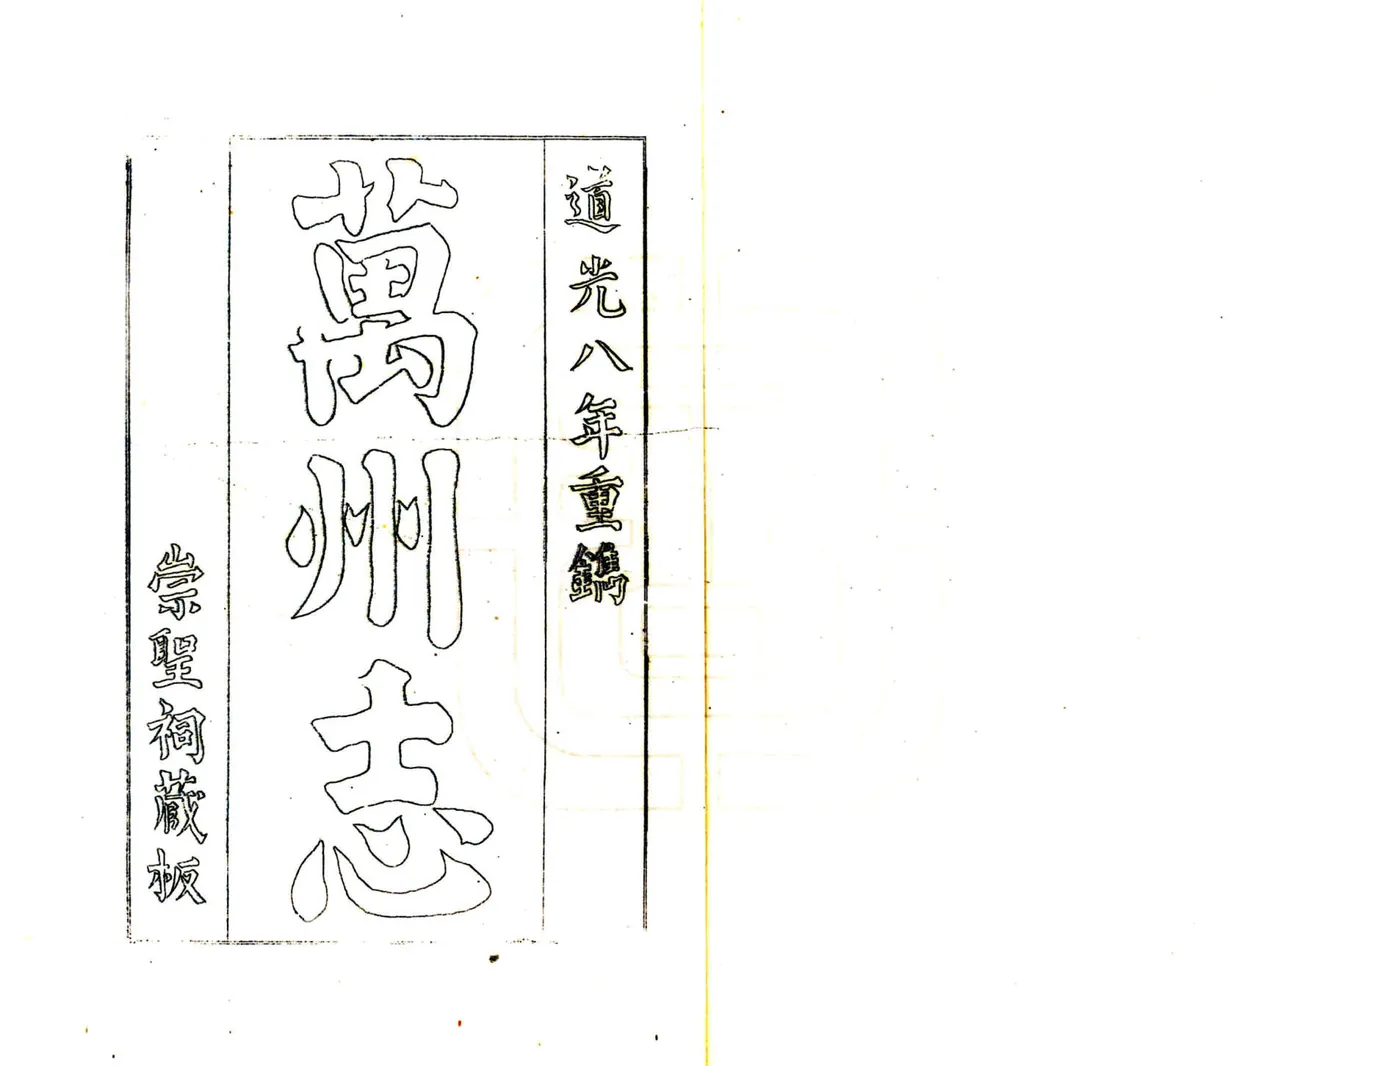 道光八年重鐫
萬州志
崇聖祠蔵板